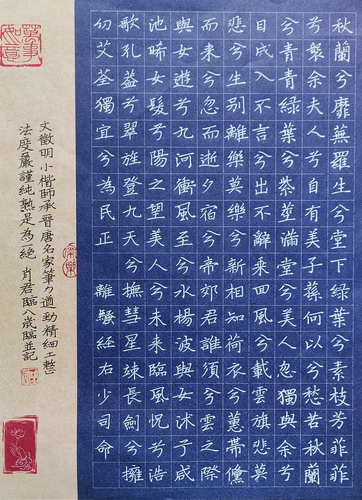 秋蘭兮蘼蕪羅生兮堂下綠葉兮素枝芳菲菲
兮襲余夫人兮自有美子蓀何以兮愁苦秋蘭
兮青青綠葉兮紫莖滿堂兮美人忽獨與余兮
目成入不言兮出不辭乘回風兮載雲旗悲莫
悲兮生別離樂莫樂兮新相知荷衣兮蕙帶儵
而來兮忽而逝夕宿兮帝郊君誰須兮雲之際
與女遊兮九河衝風至兮水楊波與女沐于咸
池晞女髮兮陽之望美人兮未來臨風怳兮浩
歌孔蓋兮翠旌登九天兮撫彗星竦長劍兮擁
幼艾荃獨宜兮為民正 離騷經右少司命
文徵明小楷師承晉唐名家筆力遒勁精細工整
法度嚴謹純熟是為絕 肖君臨八歲臨並記
萬事如意